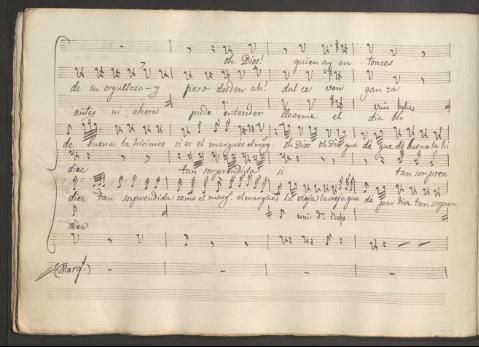 oh Dios! quien ay en tonces
de un orgulloso-y fiero desden ah! dul ce ven gan za
antes ni ahora pude entender lleveme el dia blo
de buena la hicimos si es el marques el marq. oh Dios oh Dios que de que de buena la hi
diez tan sorprendida si tan sorpren
diez tan soprendida como el marq. el marques la vieja la vieja que de par diez tan sorpren
unis
dien
(Marq.)